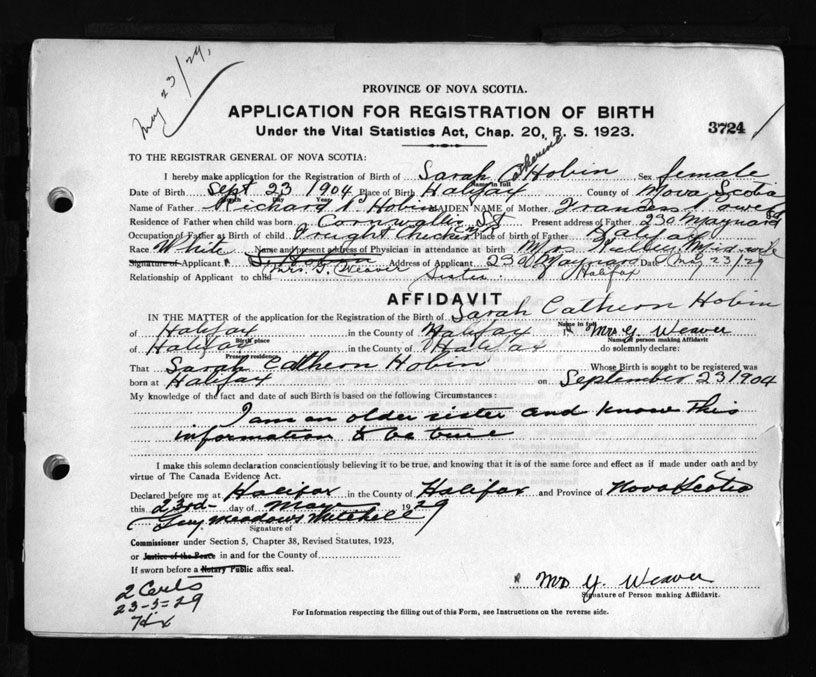 May 23/29.
PROVINCE OF NOVA SCOTIA.
APPLICATION FOR REGISTRATION OF BIRTH
Under the Vital Statistics Act, Chap. 20, R. S. 1923.
3724
TO THE REGISTRAR GENERAL OF NOVA SCOTIA:
I hereby make application for the Registration of Birth of Sarah Catherine Hobin Sex female
Name in full
Date of Birth Sept 23 1904 Place of Birth Halifax County of Nova Scotia
Month Day Year
Name of Father Richard Hobin MAIDEN NAME of Mother Frances Power
Residence of Father when child was born Cornwallis St Present address of Father 230 Maynard St
Occupation of Father at Birth of child Freight Checker Place of birth of Father Halifax
Race White Name and present address of Physician in attendance at birth Mrs Mid-wife
Signature of Applicant Mrs. G. Weaver Address of Applicant 230 Maynard Date May 23/29
Relationship of Applicant to child Sister Halifax
AFFIDAVIT
IN THE MATTER of the application for the Registration of the Birth of Sarah Cathern Hobin
Name in full
of Halifax in the County of Halifax I, Mrs G. Weaver
Birth place Name of person making Affidavit
of Halifax in the County of Halifax do solemnly declare:
Present residence
That Sarah Cathern Hobin Whose Birth is sought to be registered was
born at Halifax on September 23 1904
My knowledge of the fact and date of such Birth is based on the following Circumstances:
I am an older sister and know this
information to be true
I make this solemn declaration conscientiously believing it to be true, and knowing that it is of the same force and effect as if made under oath and by
virtue of The Canada Evidence Act.
Declared before me at Halifax in the County of Halifax and Province of Nova Scotia
this 23rd day of May 1929
Meadows Mitchell
Signature of
Commissioner under Section 5, Chapter 38, Revised Statutes, 1923,
or Justice of the Peace in and for the County of
If sworn before a Notary Public affix seal.
2 Certs
23-5=29
Hx
Mrs G. Weaver
Signature of Person making Affidavit.
For Information respecting the filling out of this Form, see Instructions on the reverse side.